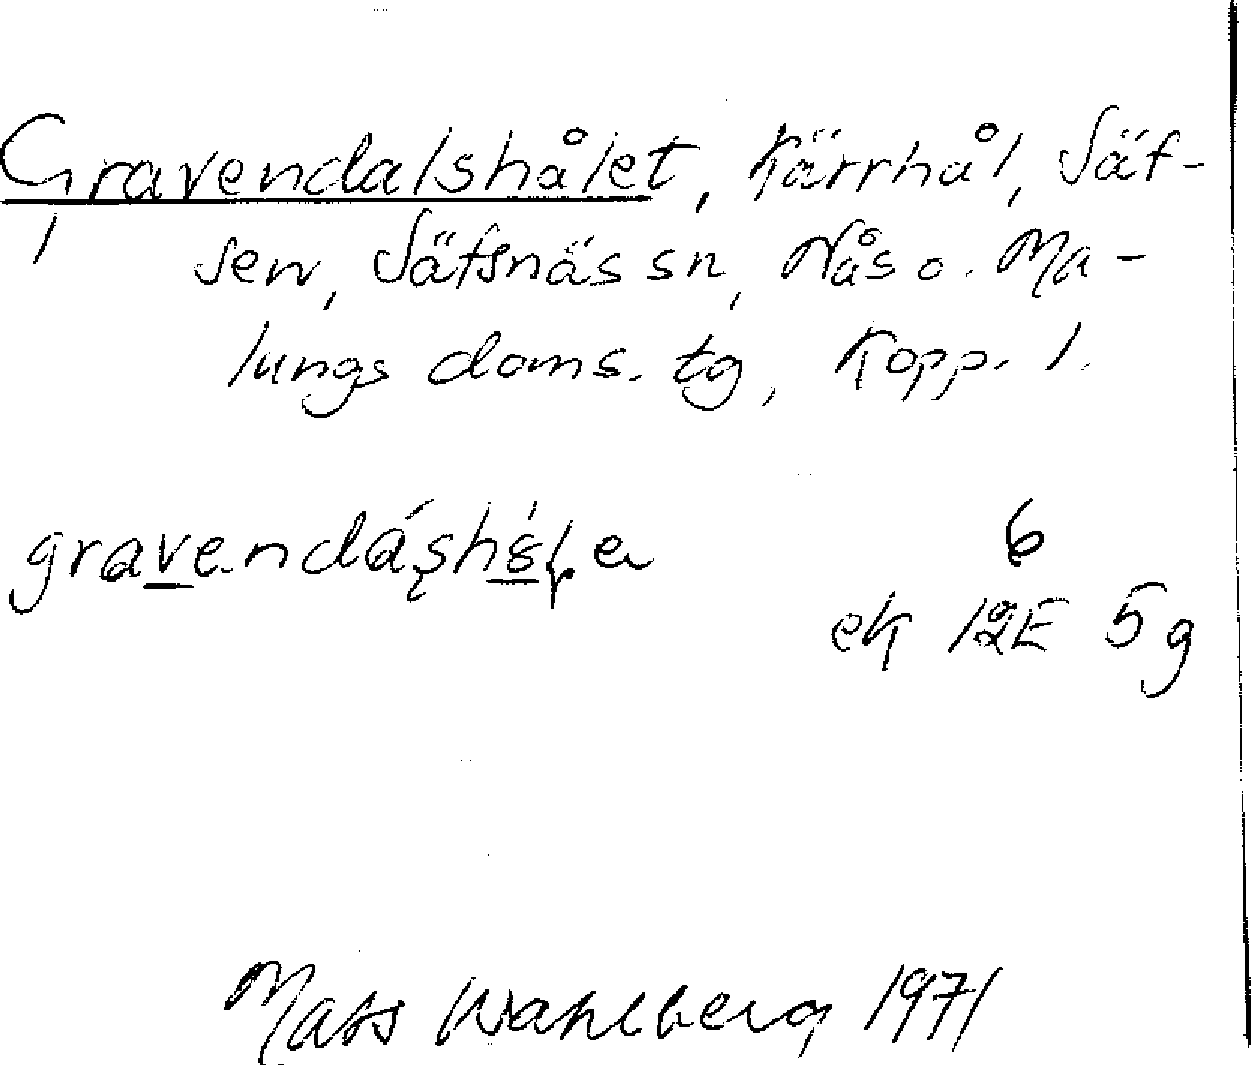 Gravendalshålet, Kärrhål, Säf-
sen, Säfsnäs sn, Nås o. Ma-
lungs doms. tg, Kopp. l.
6
ek 12E 5g
Mats Wahlberg 1971